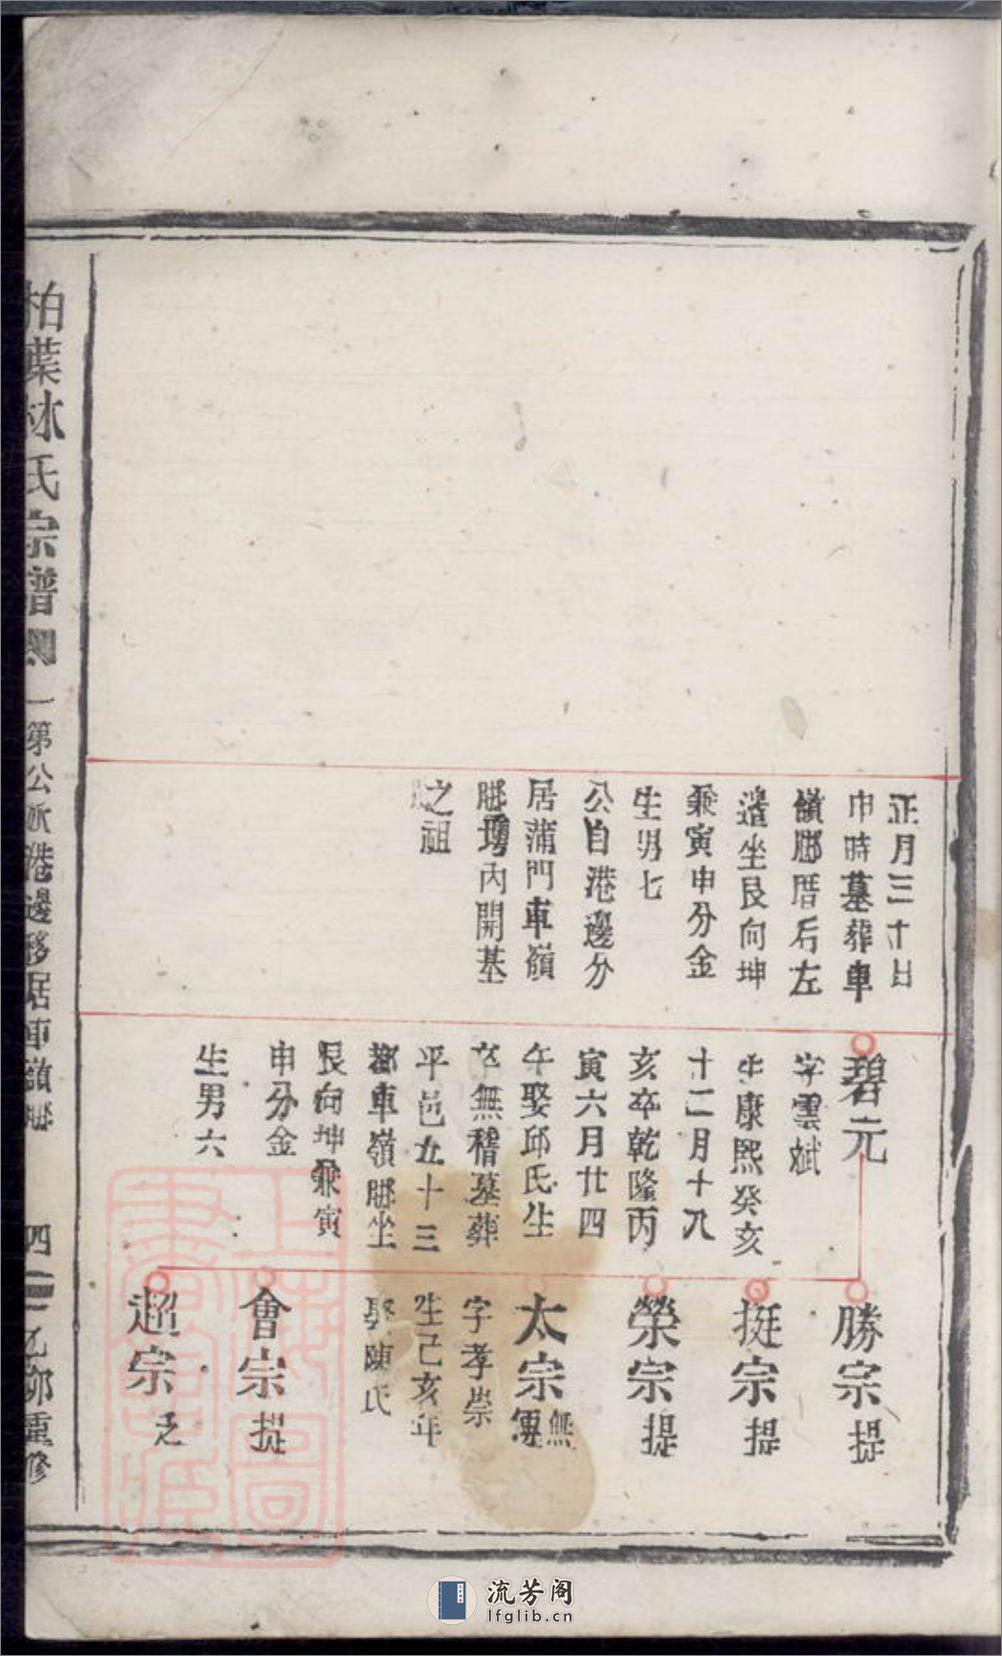 正月三十日
申時墓葬車
嶺腳厝后左
邉坐艮向坤
兼寅申分金
生男七
公自港邊分
居蒲門車嶺
腳塆內開基
之祖
碧元
字雲斌
生康熙癸亥
十二月十九
亥卒乾隆丙
寅六月廿四
午娶邱氏生
卒無稽墓葬
平邑五十三
都車嶺腳坐
艮向坤兼寅
申分金
生男六
勝宗提
挺宗提
榮宗提
太宗無傳
字孝崇
生己亥年
娶陳氏
會宗提
超宗乏
柏葉林氏宗譜
一第公派港邊移居車嶺腳
四
乙卯重修
上海圖書館藏
流芳阁
lfglib.cn